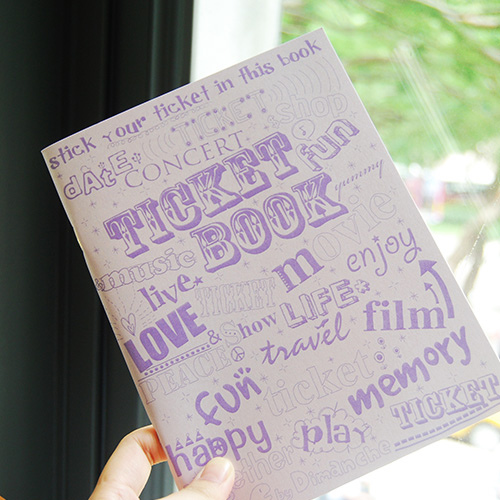 stick your ticket in this book
TICKET
shop
date
CONCERT
fun
TICKET
BOOK
yummy
music
movie
live
TICKET
m
enjoy
LOVE
& show
LIFE
film
PEACE
travel
fun
ticket
memory
TICKET
happy
play
Dimanche